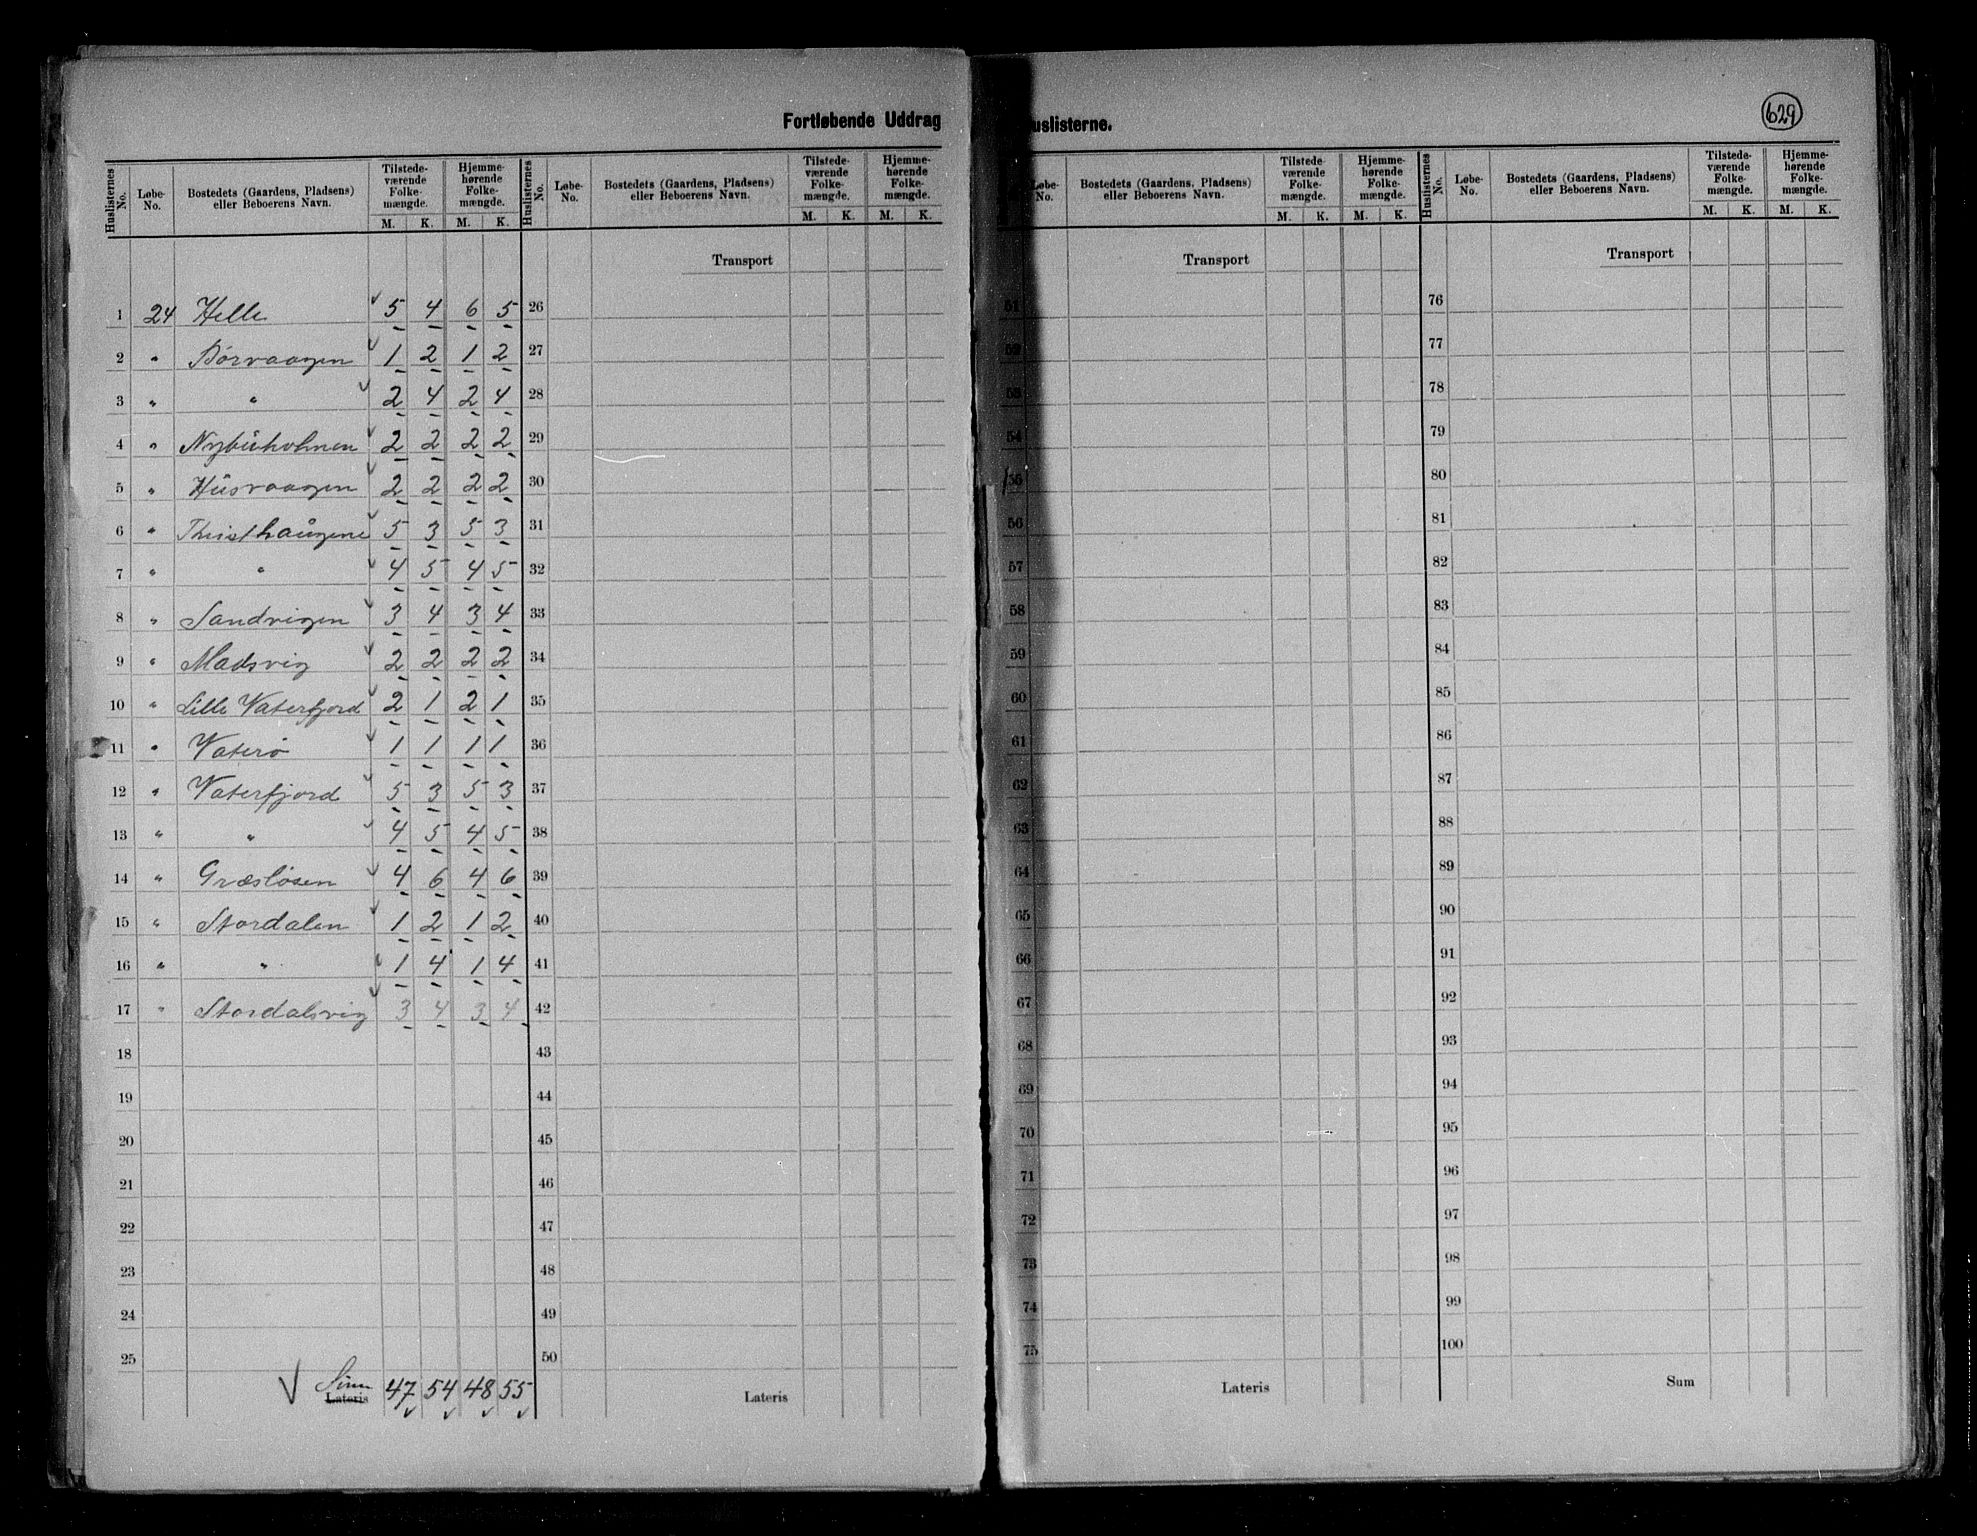 629
Fortløbende Uddrag uslisterne.
Huslisternes No. Løbe-No. Bostedets (Gaardens, Pladsens) eller Beboerens Navn. Tilstede-værende Folke-mængde. M. K. Hjemme-hørende Folke-mængde. M. K.
Huslisternes No. Løbe-No. Bostedets (Gaardens, Pladsens) eller Beboerens Navn. Tilstede-værende Folke-mængde. M. K. Hjemme-hørende Folke-mængde. M. K.
Løbe-No. Bostedets (Gaardens, Pladsens) eller Beboerens Navn. Tilstede-værende Folke-mængde. M. K. Hjemme-hørende Folke-mængde. M. K.
Huslisternes No. Løbe-No. Bostedets (Gaardens, Pladsens) eller Beboerens Navn. Tilstede-værende Folke-mængde. M. K. Hjemme-hørende Folke-mængde. M. K.
Transport Transport Transport
1 24 Helle 5 4 6 5 26 51 76
2 " Børvaagen 1 2 1 2 27 52 77
3 " " 2 4 2 4 28 53 78
4 " Nybuholmen 2 2 2 2 29 54 79
5 " Husvaagen 2 2 2 2 30 55 80
6 " Thisthaugene 5 3 5 3 31 56 81
7 " " 4 5 4 5 32 57 82
8 " Sandvigen 3 4 3 4 33 58 83
9 " Madsvig 2 2 2 2 34 59 84
10 " Lille Vaterfjord 2 1 2 1 35 60 85
11 " Vaterø 1 1 1 1 36 61 86
12 " Vaterfjord 5 3 5 3 37 62 87
13 " " 4 5 4 5 38 63 88
14 " Græsløsen 4 6 4 6 39 64 89
15 " Stordalen 1 2 1 2 40 65 90
16 " " 1 4 1 4 41 66 91
17 " Stordalsvig 3 4 3 4 42 67 92
18 43 68 93
19 44 69 94
20 45 70 95
21 46 71 96
22 47 72 97
23 48 73 98
24 49 74 99
25 50 75 100
Sum
Lateris 47 54 48 55 Lateris Lateris Sum